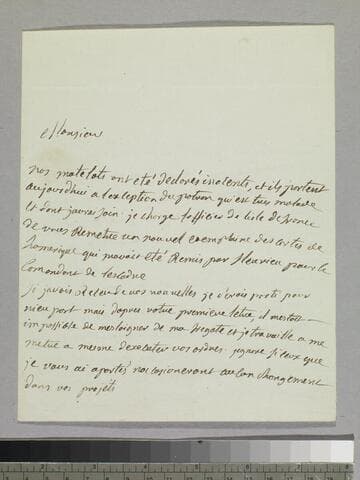 Monsieur
nos matelots ont été declarés inocents, et ils partent
aujourdhui a lexeption du patron qui est tres malade
et dont jaurai soin. je charge lofficier de lisle de france
de vous Remettre un nouvel exemplaire des cartes de
lamerique qui mavoit été Remis par fleurieu pour le
Comandant de lescadre
si javois Recu de vos nouvelles je serois parti pour
nieu port mais dapres votre premiere letre, il mestoit
impossible de mesloigner de ma fregate et je travaille a me
metre a mesme dexecuter vos ordres. jespere si ceux que
je vous ai aportés nocasioneront aucun changement
dans vos projets